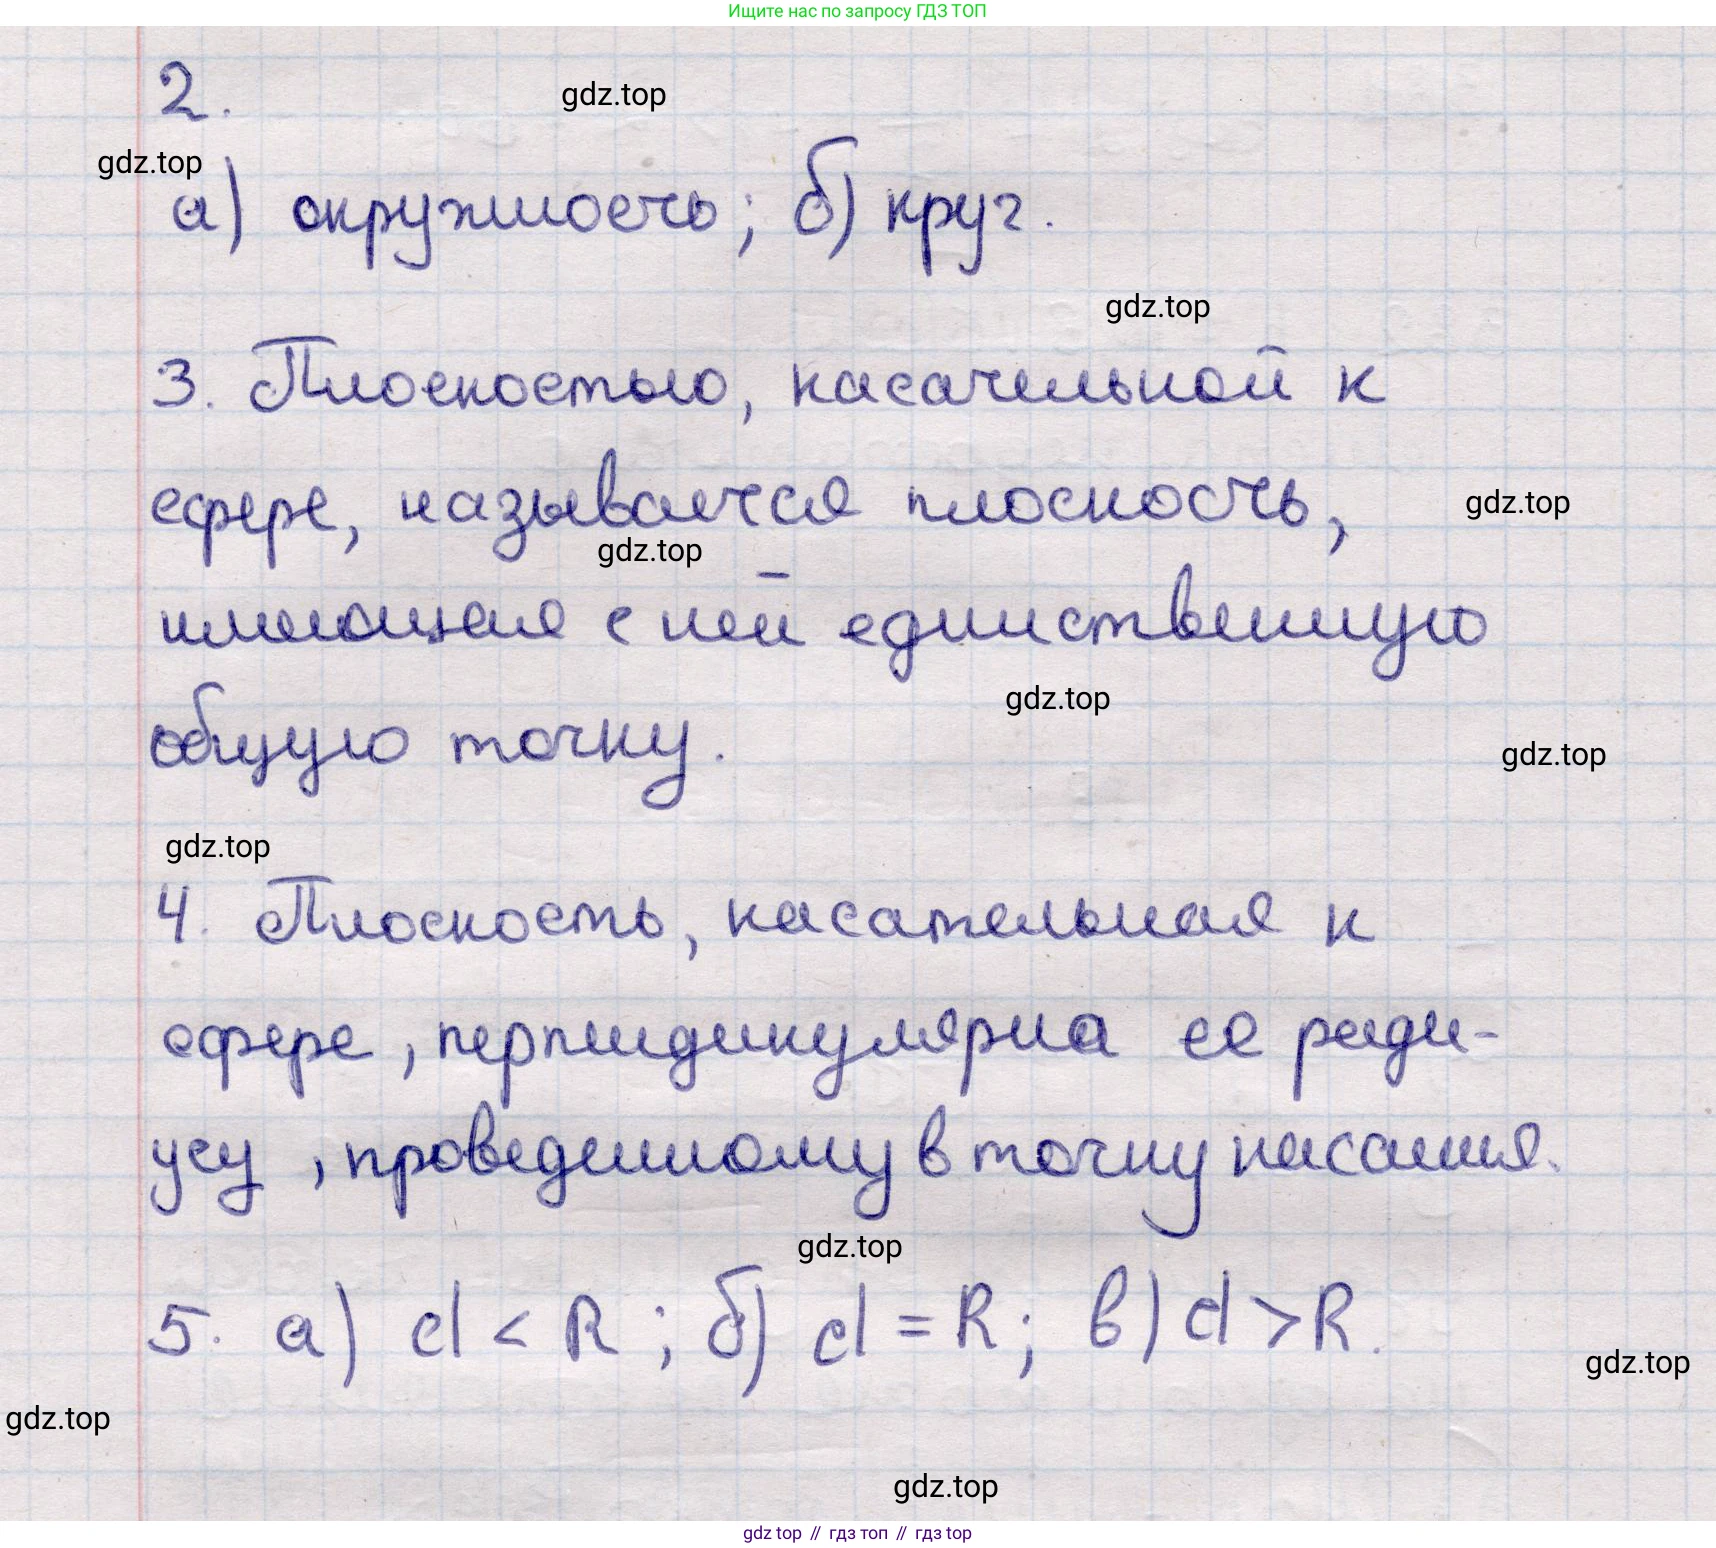 Ищите нас по запросу ГДЗ ТОП
2.
gdz.top
gdz.top
а) окружность; б) круг.
gdz.top
3. Плоскостью, касательной к
сфере, называется плоскость,
gdz.top
gdz.top
имеющая с ней единственную
gdz.top
общую точку.
gdz.top
gdz.top
4. Плоскость, касательная к
сфере, перпендикулярна ее ради-
усу, проведенному в точку касания.
gdz.top
5. а) d < R; б) d = R; в) d > R.
gdz.top
gdz.top
gdz.top
gdz top // гдз топ // гдз top